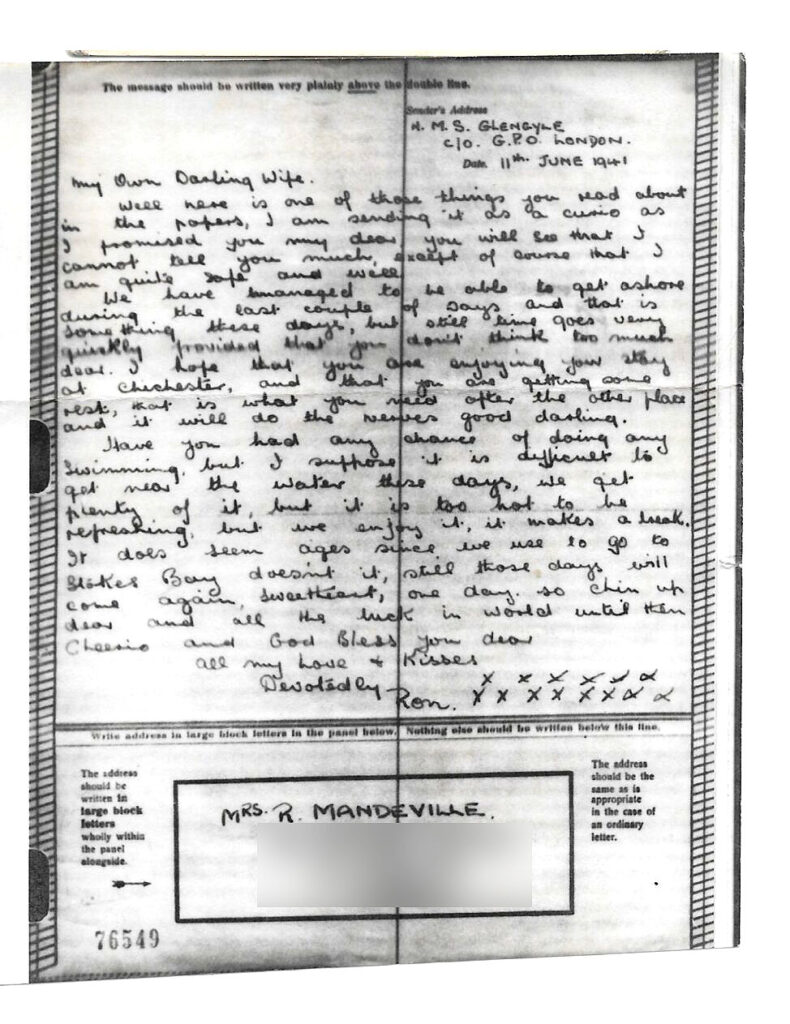 The message should be written very plainly above the double line.
Sender's Address
H. M. S. GLENGYLE
C/O. G.P.O. LONDON.
Date. 11th JUNE 1941
My Own Darling Wife.
Well here is one of those things you read about
in the papers, I am sending it as a curio as
I promised you my dear, you will see that I
cannot tell you much, except of course that I
am quite safe and well.
We have managed to be able to get ashore
during the last couple of days and that is
something these days, but still time goes very
quickly provided that you don't think too much
dear. I hope that you are enjoying your stay
at Chichester, and that you are getting some
rest, that is what you need after the other place
and it will do the nerves good darling.
Have you had any chance of doing any
swimming, but I suppose it is difficult to
get near the water these days, we get
plenty of it, but it is too hot to be
refreshing, but we enjoy it, it makes a break.
It does seem ages since we use to go to
Stokes Bay doesn't it, still those days will
come again, sweetheart, one day. so chin up
dear and all the luck in world until then
Cheerio and God Bless you dear
all my love + Kisses
Devotedly Ron. x x x x x x
x x x x x x x x
Write address in large block letters in the panel below. Nothing else should be written below this line.
The address
should be
written in
large block
letters
wholly within
the panel
alongside.
MRS. R. MANDEVILLE.
The address
should be the
same as is
appropriate
in the case of
an ordinary
letter.
76549